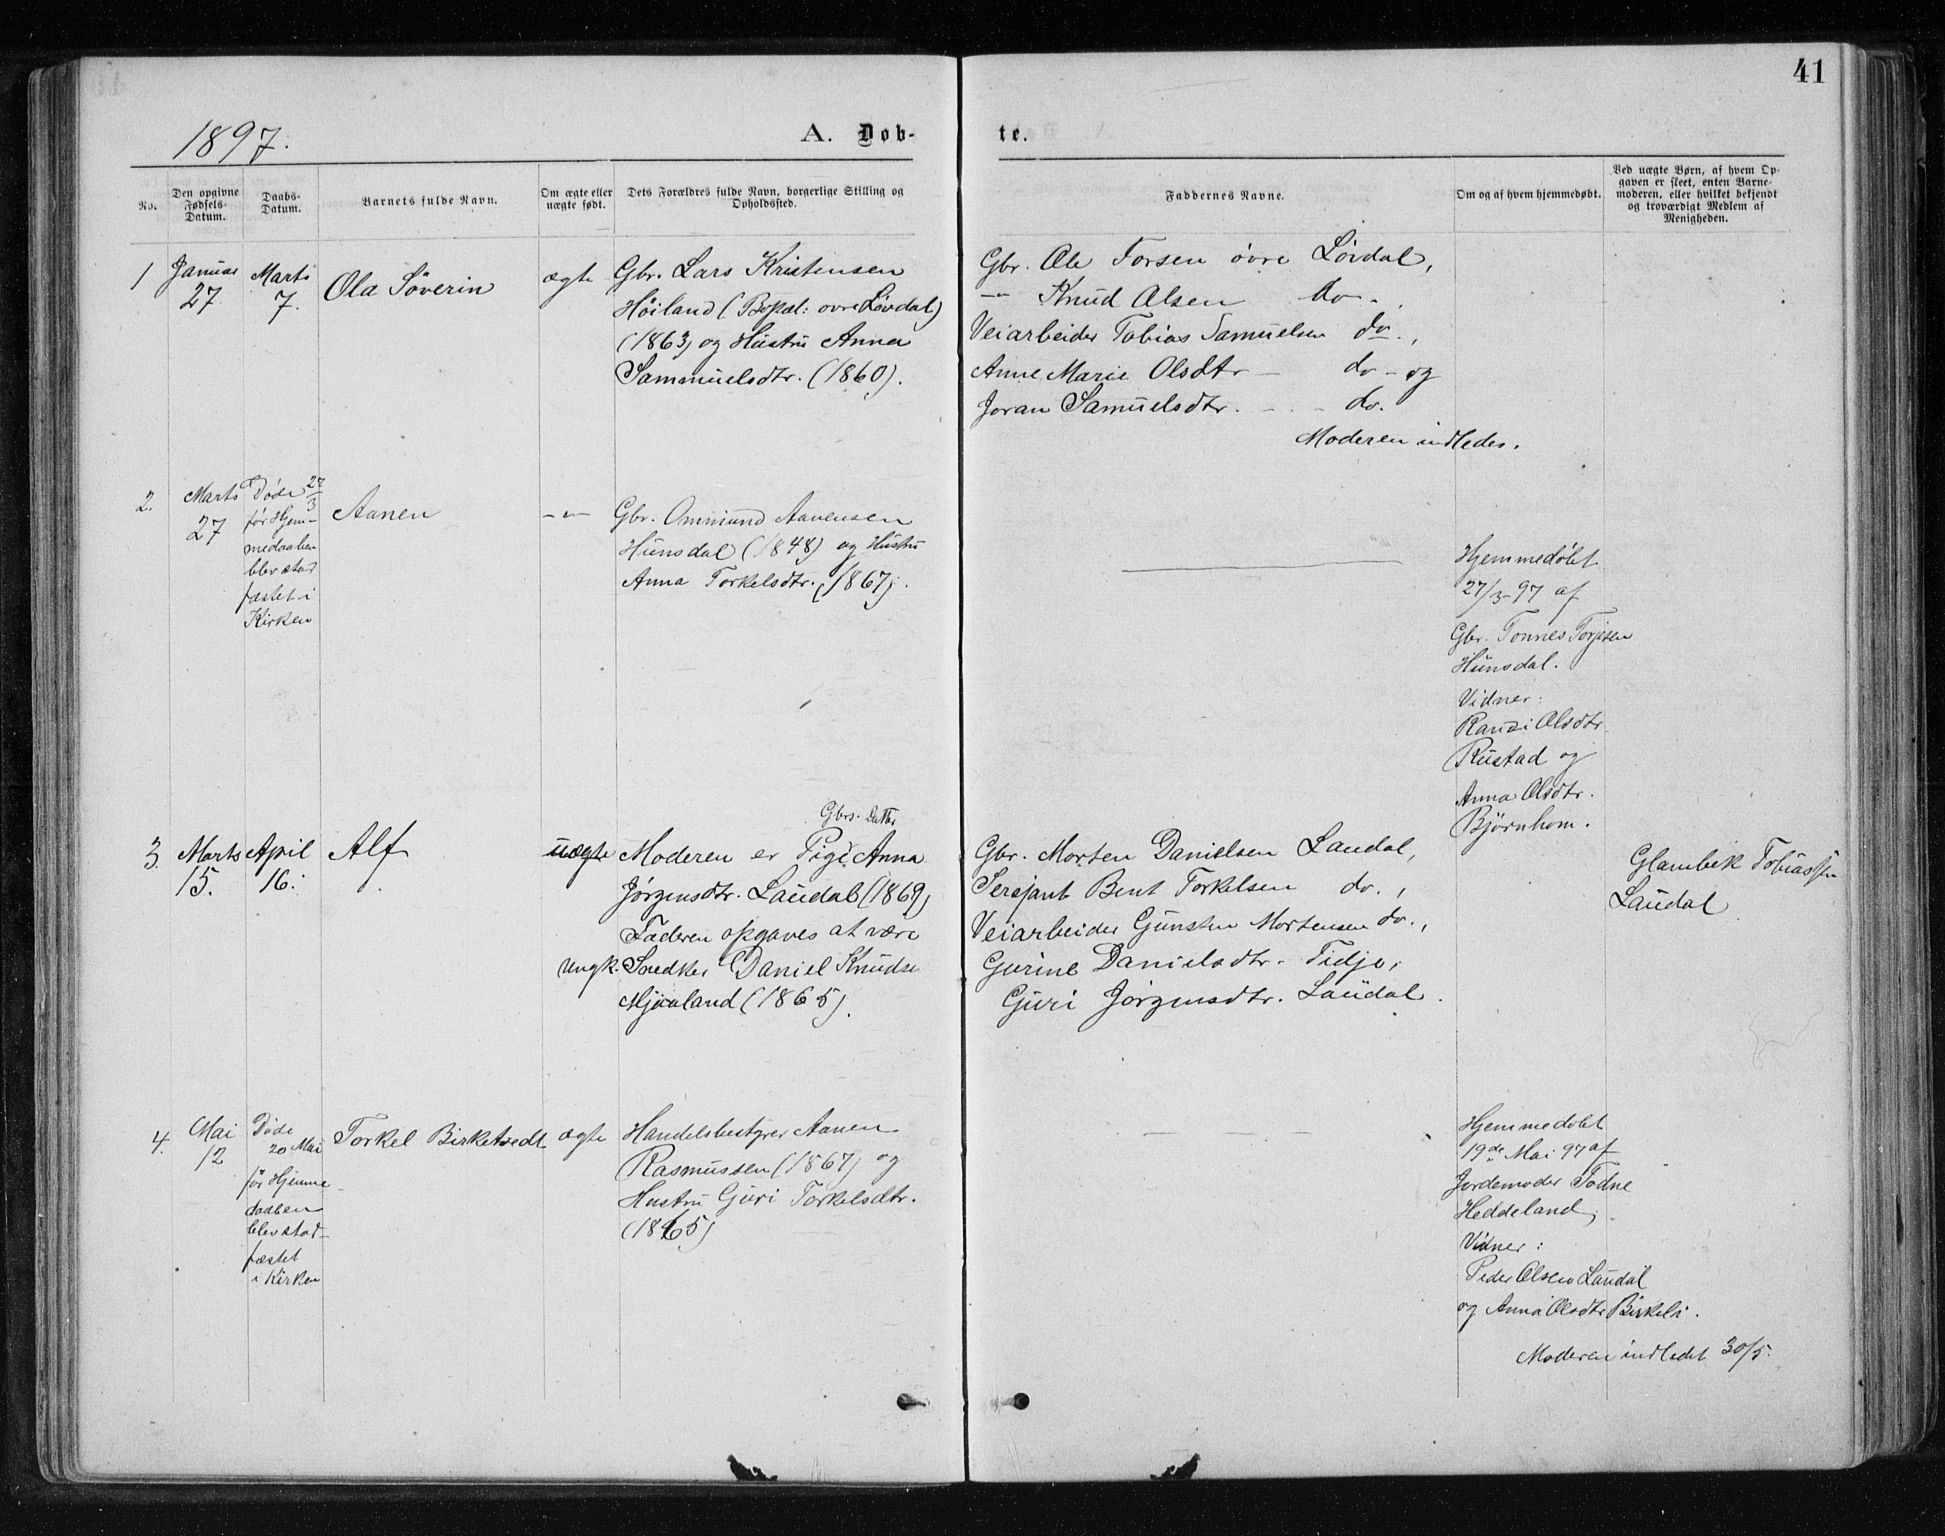 41
1897.
A. Døb-
te.
No.
Den opgivne
Fødsels-
Datum.
Daabs-
Datum.
Barnets fulde Navn.
Om ægte eller
uægte født.
Dets Forældres fulde Navn, borgerlige Stilling og
Opholdssted.
Faddernes Navne.
Om og af hvem hjemmedøbt.
Ved uægte Børn, af hvem Op-
gaven er skeet, enten Barne-
moderen, eller hvilket bekjendt
og troværdigt Medlem af
Menigheden.
1
Januar
27
Marts
7.
Ola Söverin
ægte
Gbr. Lars Kristensen
Höiland (Bopæl: øvre Løvdal)
(1863) og Hustru Anna
Sammuelsdtr. (1860).
Gbr. Ole Torsen övre Lövdal,
-"- Knud Olsen do.,
Veiarbeider Tobias Samuelsen do.,
Anne Marie Olsdtr - do - og
Joran Samuelsdtr. - - - do.
Moderen indledes.
2.
Marts
27
Døde 27/3
før Hjem-
medaaben
blev stad
fæstet i
Kirken
Aanen
-"-
Gbr. Ommund Aanensen
Hunsdal (1848) og Hustru
Anna Torkelsdtr. (1867).
Hjemmedøbt
27/3-97 af
Gbr. Tønnes Torjesen
Hunsdal.
Vidner:
Olsdtr.
Rustad og
Anna Olsdtr.
Bjørnhom.
3.
Marts
15.
April
16.
Alf
uægte
Gbrs. Datter
Moderen er Pige Anna
Jørgensdtr. Laudal (1869)
Faderen opgaves at være
Ungk. Snedker Daniel Knudse
Mjaaland (1865).
Gbr. Morten Danielsen Laudal,
Sersjant Bent Torkelsen do.,
Veiarbeider Gunsten Mortensen do.,
Gurine Danielsdtr. Tidje,
Guri Jörgensdtr. Laudal.
Glambek Tobiassen
Laudal
4.
Mai
12
Døde
20 Mai
før Hjemme
daaben
blev stad-
fæstet
i Kirken
Torkel Birketvedt
ægte
Handelsbestyrer Aanen
Rasmussen (1867) og
Hustru Guri Torkelsdtr.
(1865)
Hjemmedøbt
19de Mai 97 af
Jordemoder Todne
Heddeland,
Vidner:
Peder Olsen Laudal
og Anna Olsdtr Birkeli.
Moderen indledet 30/5.